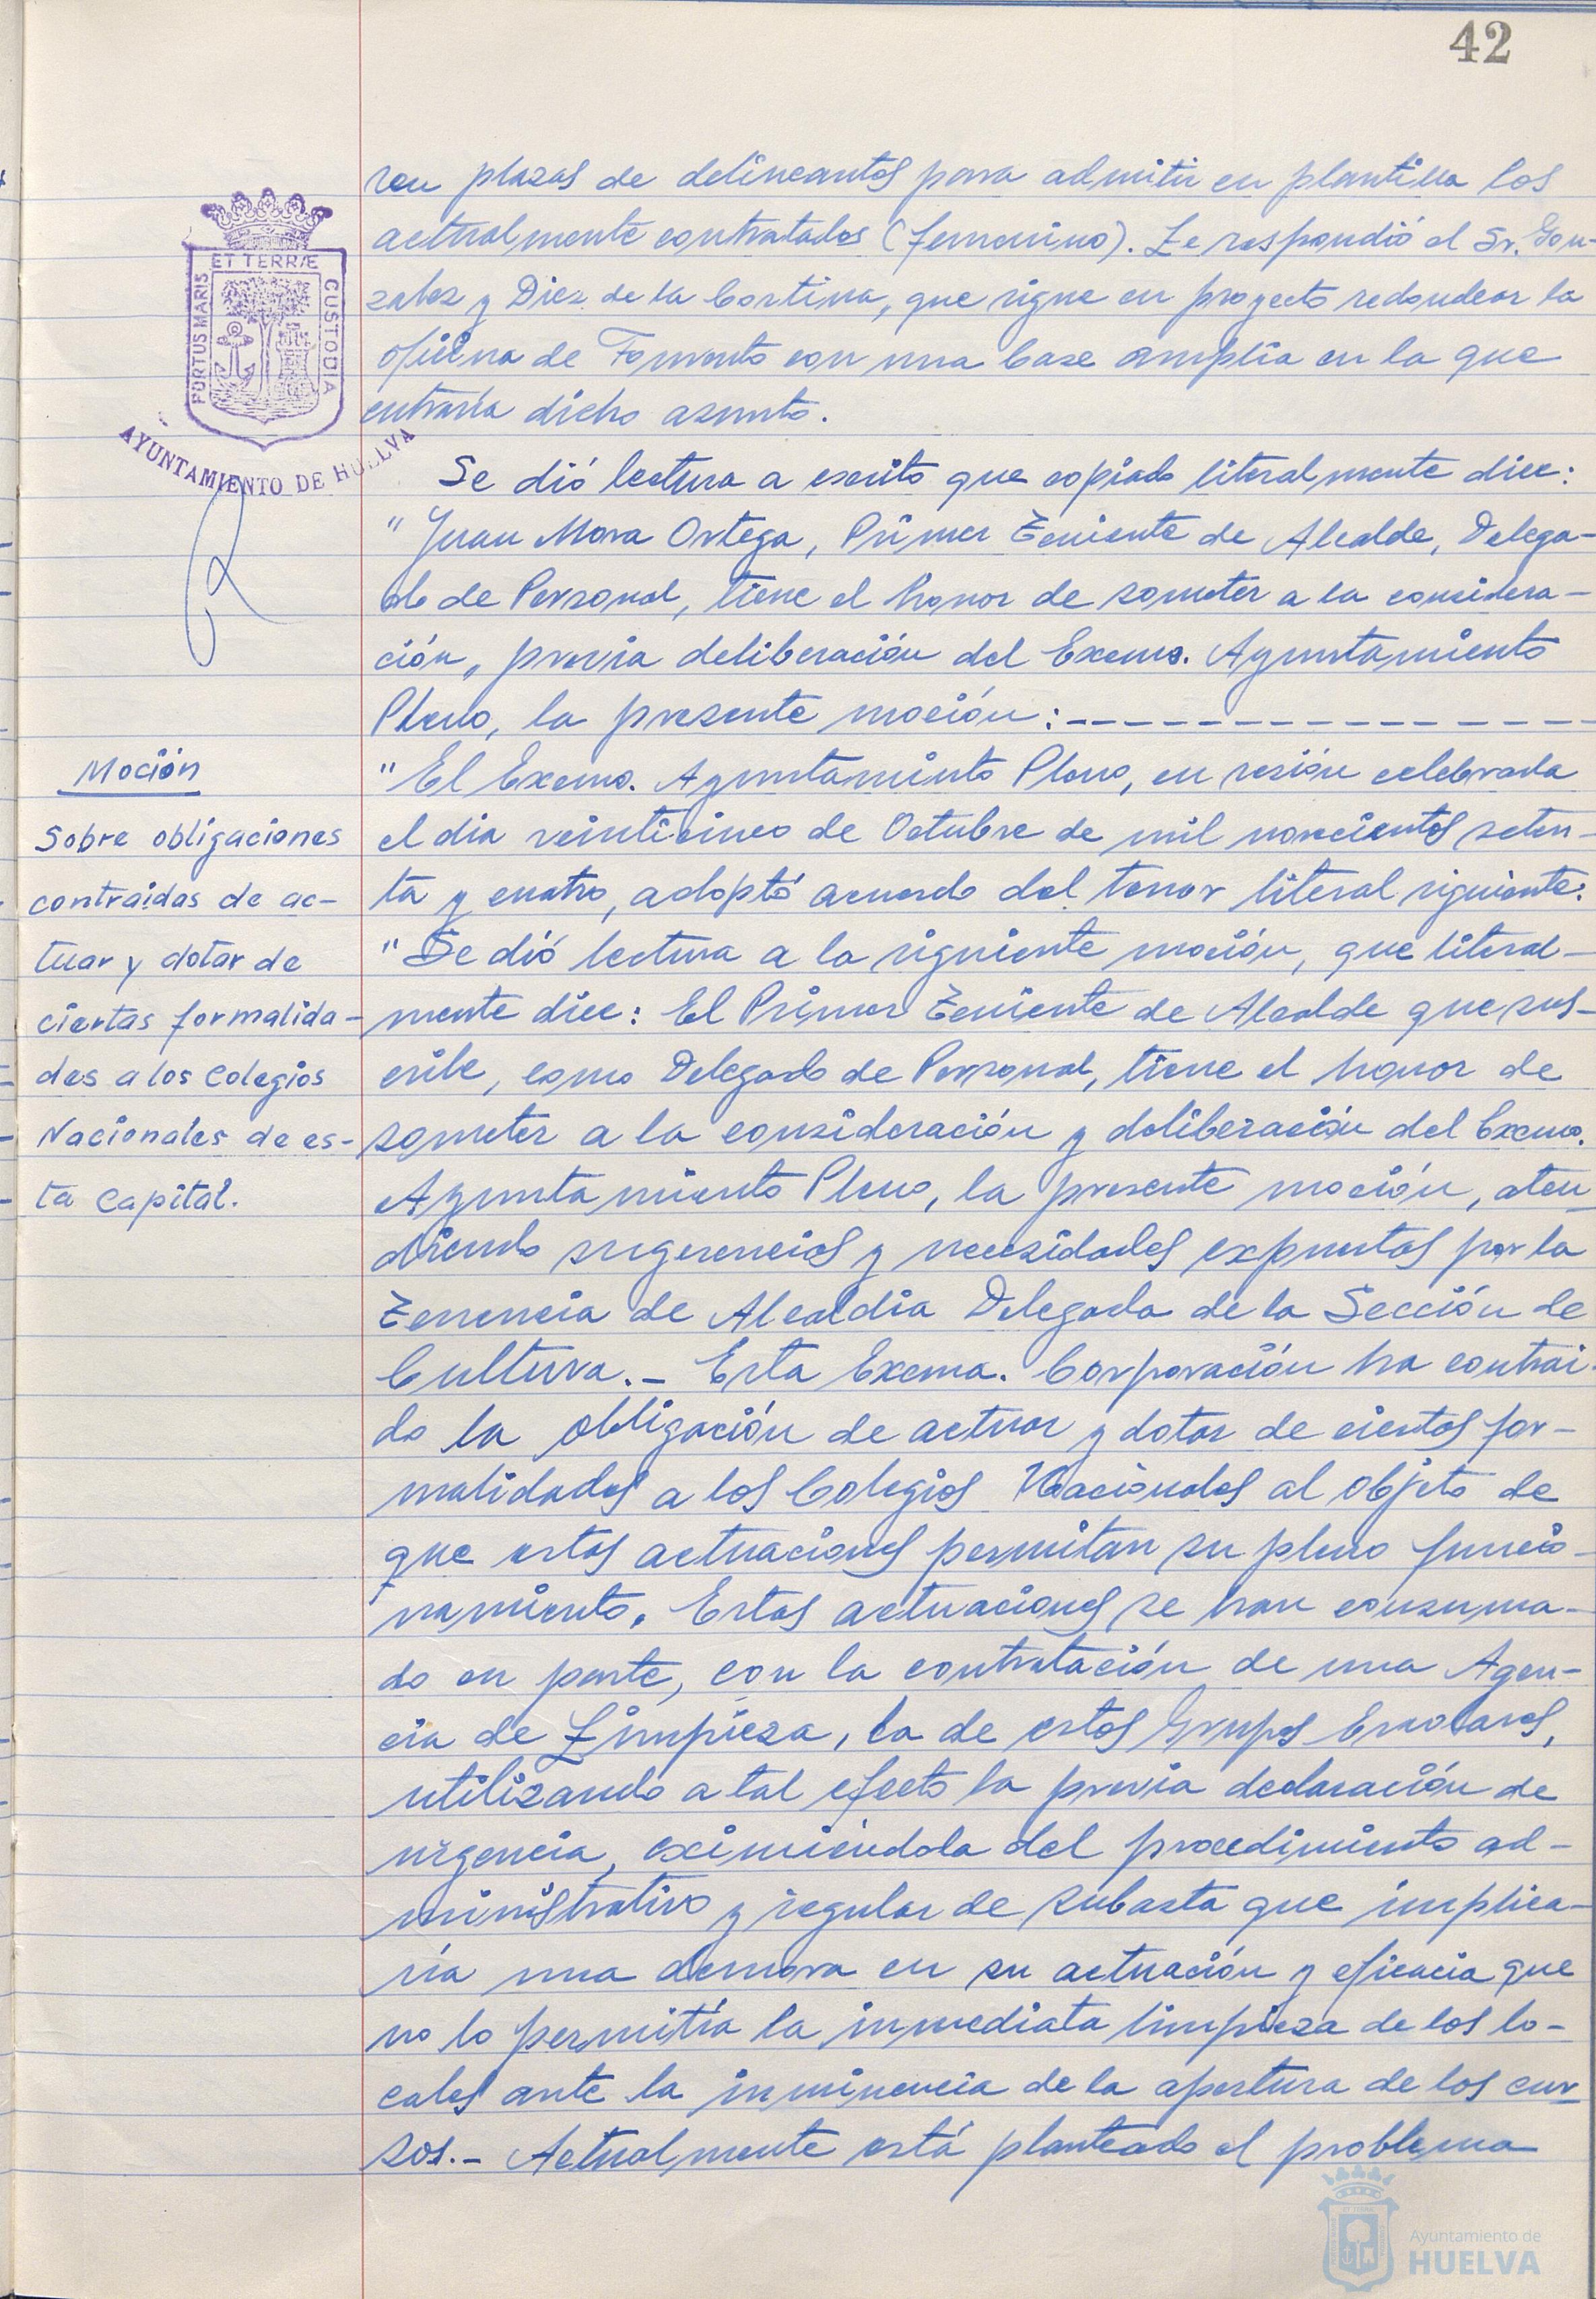 42
ren plazas de delineantes para admitir en plantilla los
actualmente contratados (femenino). Le respondió el Sr. Gon-
zalez y Diez de la Cortina, que sigue en proyecto redondear la
oficina de Fomento con una base amplia en la que
entraría dicho asunto.
ET TERRÆ
PORTUS MARIS
CUSTODIA
AYUNTAMIENTO DE HUELVA
Se dió lectura a escrito que copiado literalmente dice:
"Juan Mora Ortega, Primer Teniente de Alcalde, Delega-
do de Personal, tiene el honor de someter a la considera-
ción, previa deliberación del Excmo. Ayuntamiento
Pleno, la presente moción: ----------------
Moción
Sobre obligaciones
contraidas de ac-
tuar y dotar de
ciertas formalida-
des a los Colegios
Nacionales de es-
ta Capital.
"El Excmo. Ayuntamiento Pleno, en sesión celebrada
el dia veinticinco de Octubre de mil novecientos seten-
ta y cuatro, adoptó acuerdo del tenor literal siguiente:
"Se dió lectura a la siguiente moción, que literal-
mente dice: El Primer Teniente de Alcalde que sus-
cribe, como Delegado de Personal, tiene el honor de
someter a la consideración y deliberación del Excmo.
Ayuntamiento Pleno, la presente moción, aten
diendo sugerencias y necesidades expuestas por la
Tenencia de Alcaldia Delegada de la Sección de
Cultura.- Esta Excma. Corporación ha contrai-
do la obligación de actuar y dotar de ciertas for-
malidades a los Colegios Nacionales al objeto de
que estas actuaciones permitan su pleno funcio-
namiento. Estas actuaciones se han consuma-
do en parte, con la contratación de una Agen-
cia de Limpieza, la de estos Grupos Escolares,
utilizando a tal efecto la previa declaración de
urgencia, eximiéndola del procedimiento ad-
ministrativo y regular de subasta que implica-
ría una demora en su actuación y eficacia que
no lo permitía la inmediata limpieza de los lo-
cales ante la inminencia de la apertura de los cur
sos.- Actualmente está planteado el problema
Ayuntamiento de
HUELVA